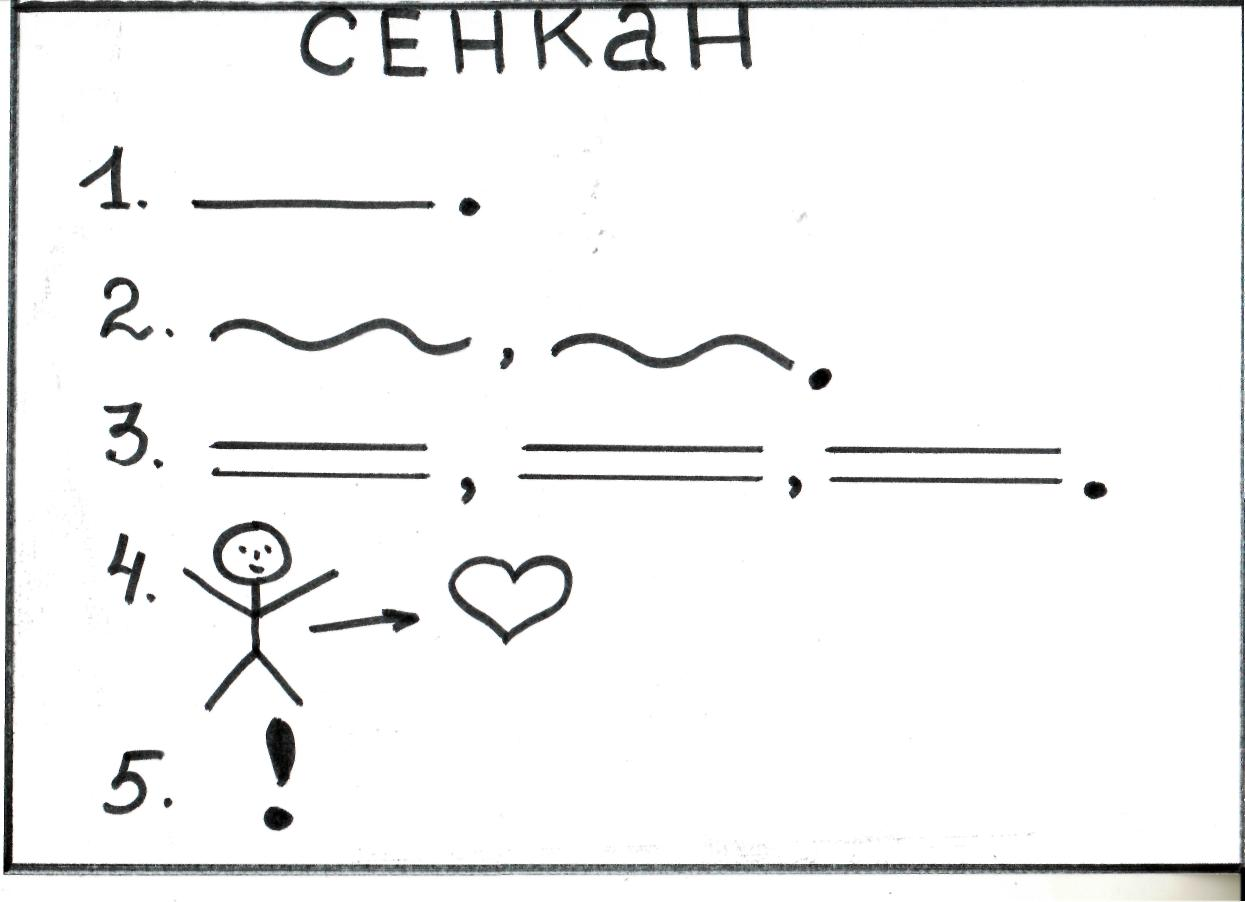 СЕНКаН
1. .
2. , .
3. , , .
4.
5. !